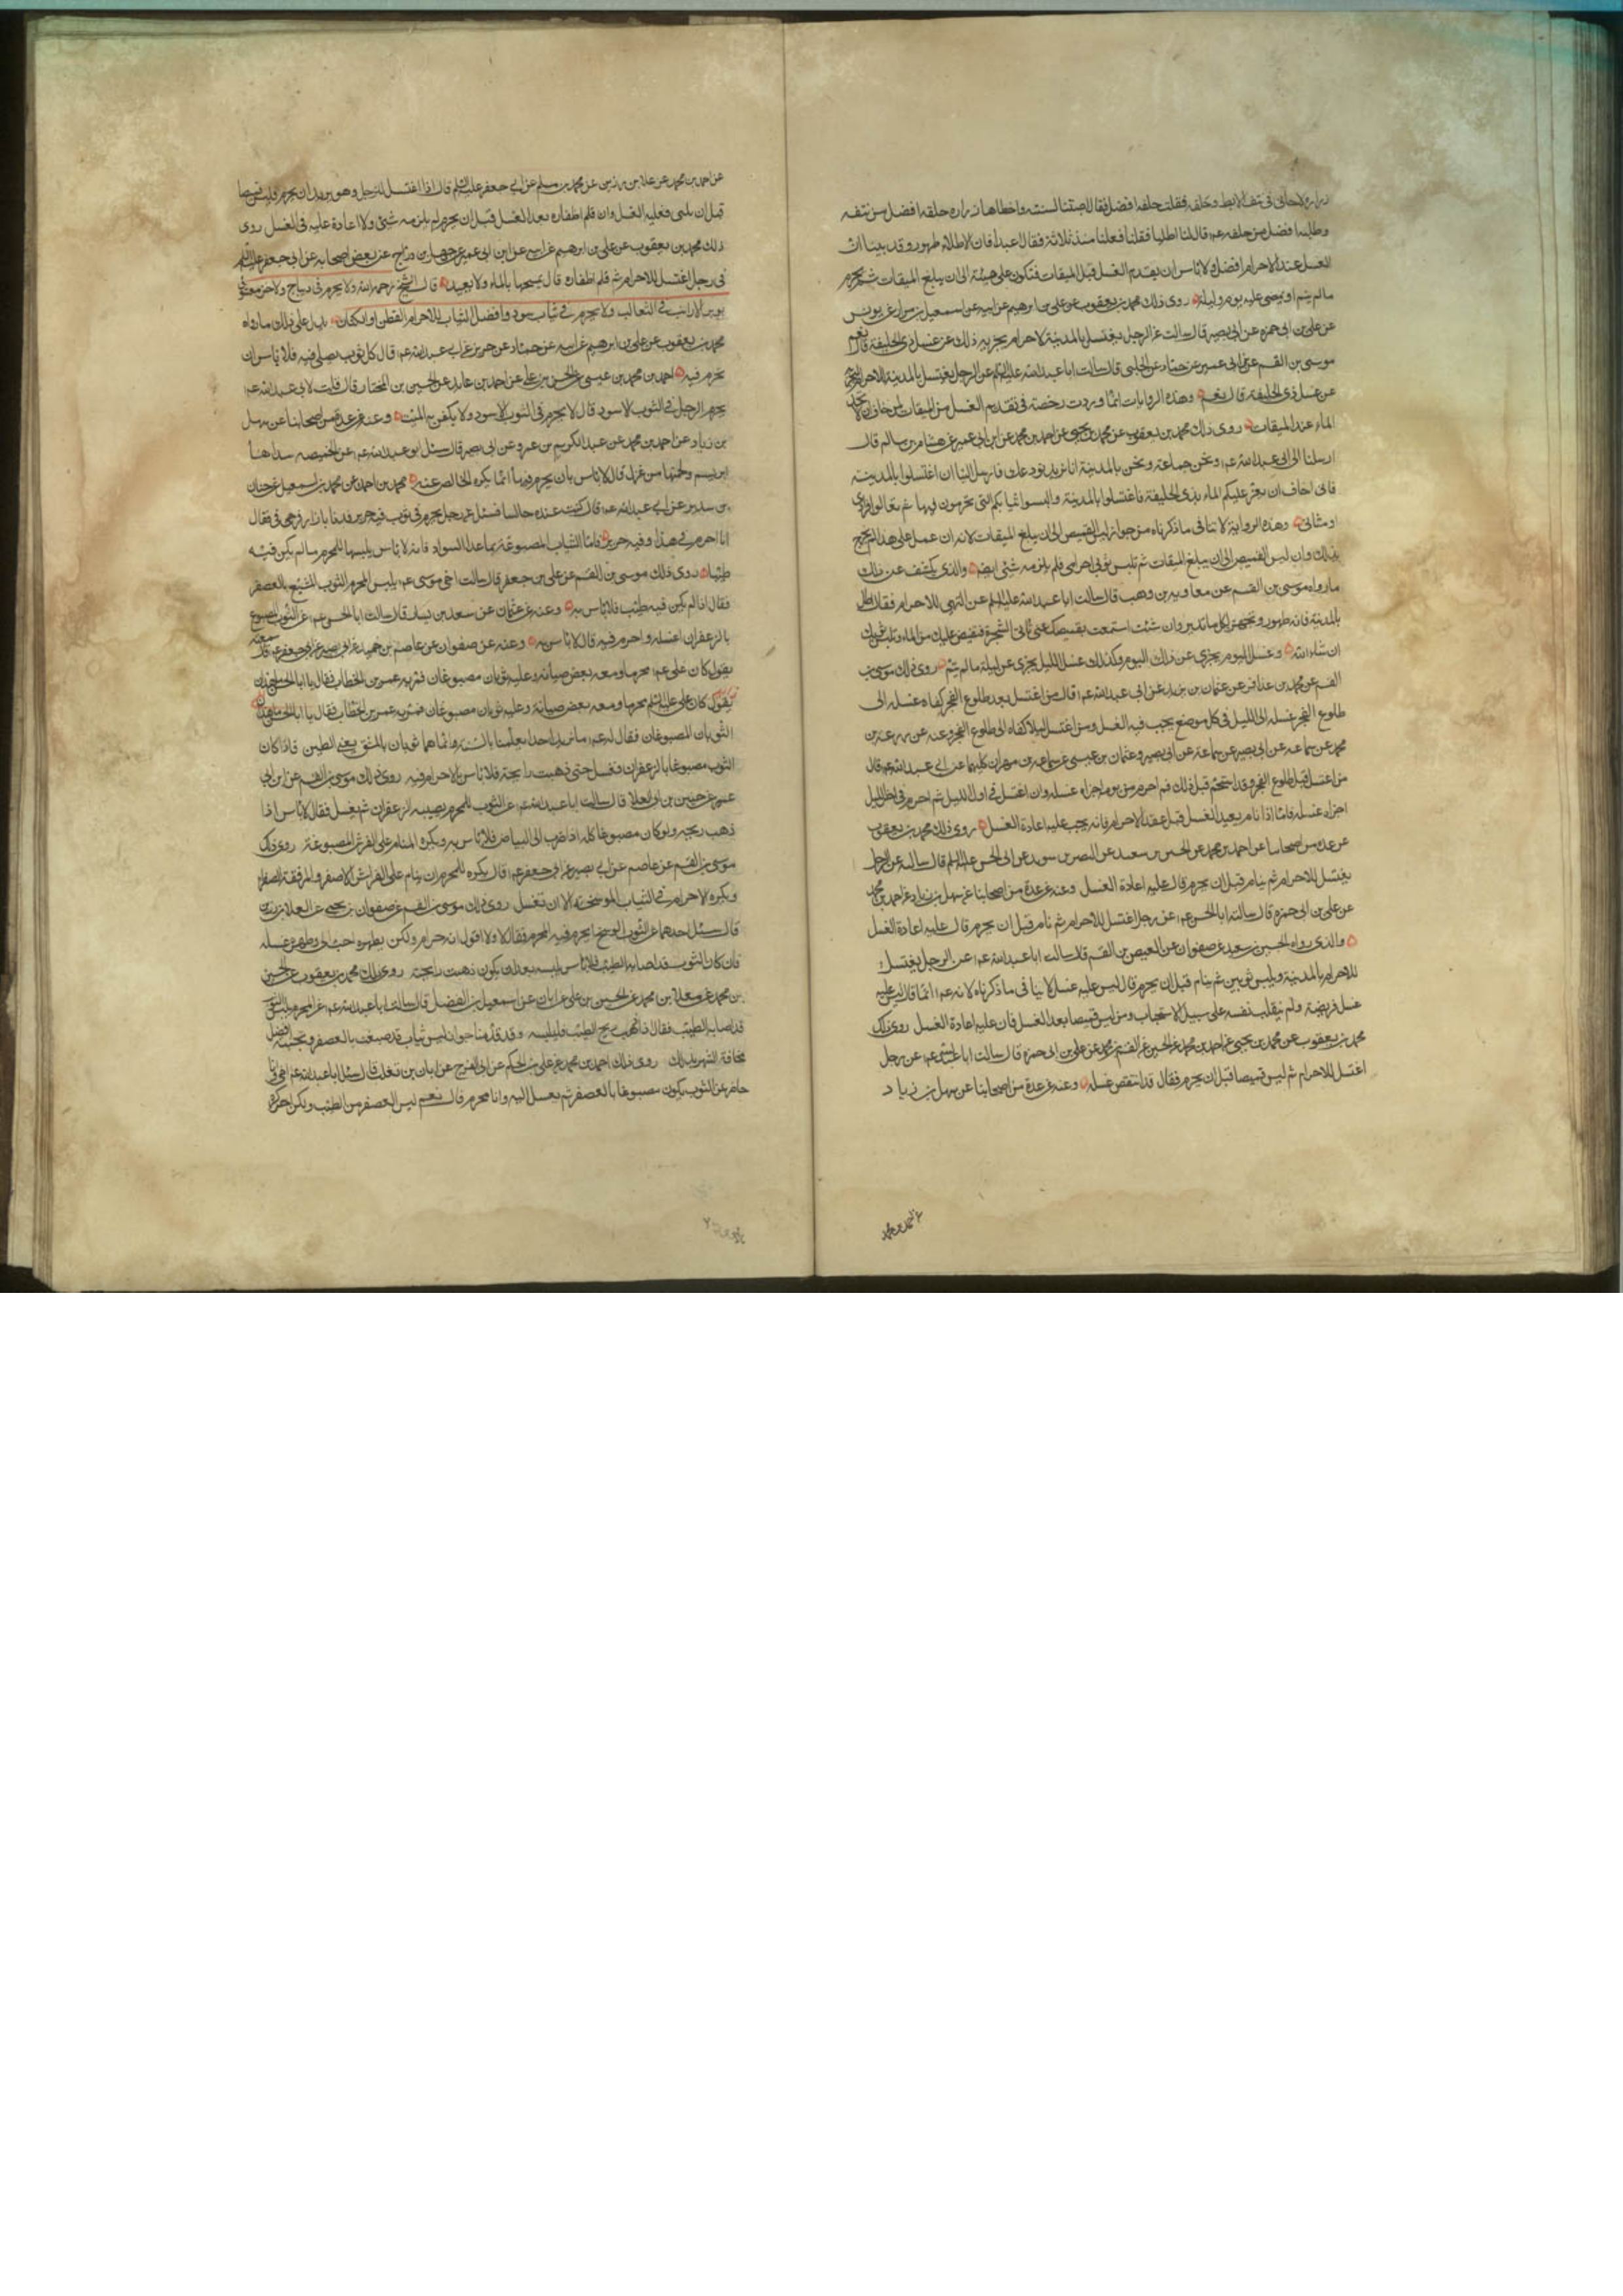 زراره لاحانى فى نتف الابط وحلقه فقلت حلقه افضل فقال اصبت السنة واخطاها زراره حلقه افضل من نتفه
وطليه افضل من حلقه ثم قال لنا اطليا فقلنا فعلنا منذ ثلاثة فقال اعيدا فان الاطلاء طهور وقد بينا ان
الغسل عند الاحرام افضل ولا باس ان يقدم الغسل قبل الميقات فتكون على هيئة الى ان يبلغ الميقات ثم يحرم
ما لم ينم او يمضى عليه يوم وليلة روى ذلك محمد بن يعقوب عن على بن ابرهيم عن ابيه عن اسمعيل بن مرار عن يونس
عن على بن ابى حمزه عن ابى بصير قال سالت عن الرجل يغتسل بالمدينة لاحرامه يجزيه ذلك عن غسل ذى الحليفة قال نعم
موسى بن القسم عن ابن ابى عمير عن حماد عن الحلبى قال سالت ابا عبد الله عليه السلام عن الرجل يغتسل بالمدينة للاحرام ايجزيه
عن غسل ذى الحليفة قال نعم وهذه الروايات انما وردت رخصة فى تقديم الغسل من الميقات لمن خاف ان لا يجد
الماء عند الميقات روى ذلك محمد بن يعقوب عن محمد بن يحيى عن احمد بن محمد عن ابن ابى عمير عن هشام بن سالم قال
ارسلنا الى ابى عبد الله عم ونحن جماعة ونحن بالمدينة انا نريد نودعك فارسل الينا ان اغتسلوا بالمدينة
فانى اخاف ان يعز عليكم الماء بذى الحليفة فاغتسلوا بالمدينة والبسوا ثيابكم التى تحرمون فيها ثم تعالوا فرادى
ومثانى وهذه الرواية لا تنافى ما ذكرناه من جواز لبس القميص الى ان يبلغ الميقات لانه ان عمل على هذا لم يحتج
بذلك وان لبس القميص الى ان يبلغ الميقات ثم تلبس ثوبى احرامى فلم يلزمه شئى ايضا والذى يكشف عن ذلك
ما رواه موسى بن القسم عن معاوية بن وهب قال سالت ابا عبد الله عليه السلام عن التهى للاحرام فقال اطل
بالمدينة فانه طهور وتجهز بكل ما تريد وان شئت استمتعت بقميصك حتى تاتى الشجرة فتفيض عليك من الماء وتلبس ثوبيك
ان شاء الله وغسل اليوم يجزى عن ذلك اليوم وكذلك غسل الليل يجزى عن ليلة ما لم ينم روى ذلك موسى بن
القسم عن محمد بن عذافر عن عثمان بن يزيد عن ابى عبد الله عم قال من اغتسل بعد طلوع الفجر كفاه غسله الى
طلوع الفجر غسله الى الليل فى كل موضع يجب فيه الغسل ومن اغتسل ليلا كفاه الى طلوع الفجر وعنه عن زرعة بن
محمد عن سماعه عن ابى بصير عن سماعة عن ابى بصير وعثمان بن عيسى عن سماعه بن مهران كليهما عن ابى عبد الله عم قال
من اغتسل قبل طلوع الفجر وقد استحم قبل ذلك ثم احرم من يومه اجزاه غسله وان اغتسل فى اول الليل ثم احرم فى اخر الليل
اجزاه غسله فاما اذا نام بعد الغسل قبل عقد الاحرام فانه يجب عليه اعادة الغسل روى ذلك محمد بن يعقوب
عن عدة من اصحابنا عن احمد بن محمد عن الحسين بن سعيد عن النضر بن سويد عن ابى الحسن عليه السلام قال سالته عن الرجل
يغتسل للاحرام ثم ينام قبل ان يحرم قال عليه اعادة الغسل وعنه عن عدة من اصحابنا عن سهل بن زياد عن احمد بن محمد
عن على بن ابى حمزه قال سالت ابا الحسن عم عن رجل اغتسل للاحرام ثم نام قبل ان يحرم قال عليه اعادة الغسل
والذى رواه الحسين بن سعيد عن صفوان عن العيص بن القسم قال سالت ابا عبد الله عم عن الرجل يغتسل
للاحرام بالمدينة ويلبس ثوبين ثم ينام قبل ان يحرم قال ليس عليه غسل لا ينافى ما ذكرناه لانه عم انما قال ليس عليه
غسل فريضة ولم ينف على سبيل الاستحباب ومن لبس قميصا بعد الغسل فان عليه اعادة الغسل روى ذلك
محمد بن يعقوب عن محمد بن يحيى عن احمد بن محمد عن الحسين عن القسم بن محمد عن على بن ابى حمزه قال سالت ابا عبد الله عم عن رجل
اغتسل للاحرام ثم لبس قميصا قبل ان يحرم فقال قد انتقض غسله وعنه عن عدة من اصحابنا عن سهل بن زياد
عن احمد بن محمد عن علا بن رزين عن محمد بن مسلم عن ابى جعفر عليه السلام قال اذا اغتسل الرجل وهو يريد ان يحرم فلبس قميصا
قبل ان يلبى فعليه الغسل وان قلم اظفاره بعد الغسل قبل ان يحرم لم يلزمه شئى ولا اعادة عليه فى الغسل روى
ذلك محمد بن يعقوب عن على بن ابرهيم عن ابيه عن ابن ابى عمير عن جميل بن دراج عن بعض اصحابه عن ابى جعفر عليه السلام
فى رجل اغتسل للاحرام ثم قلم اظفاره قال يمسحها بالماء ولا يعيد قال الشيخ رحمه الله ولا يحرم فى ديباج ولا خز مغشوش
بوبر الارانب والثعالب ولا يحرم فى ثياب سود وافضل الثياب للاحرام القطن او الكتان يدل على ذلك ما رواه
محمد بن يعقوب عن على بن ابرهيم عن ابيه عن حماد عن حريز عن ابى عبد الله عم قال كل ثوب يصلى فيه فلا باس ان
تحرم فيه احمد بن محمد بن عيسى عن الحسن بن على عن احمد بن عايد عن الحسين بن المختار قال قلت لابى عبد الله عم
يحرم الرجل فى الثوب الاسود قال لا يحرم فى الثوب الاسود ولا يكفن به الميت وعنه عن عدة من اصحابنا عن سهل
بن زياد عن احمد بن محمد عن عبد الكريم بن عمرو عن ابى بصير قال سئل ابو عبد الله عم عن الخميصه سداها
ابريسم ولحمتها من غزل قال لا باس بان يحرم فيها انما يكره الخالص منه محمد بن احمد عن محمد بن اسمعيل عن حنان
بن سدير عن ابى عبد الله عم قال كنت عنده جالسا فسئل عن رجل يحرم فى ثوب فيه حرير فدعا بازار قرقبى فقال
انا احرم فى هذا وفيه حرير فاما الثياب المصبوغة بما عدا السواد فانه لا باس بلبسها للمحرم ما لم يكن فيه
طيبا روى ذلك موسى بن القسم عن على بن جعفر قال سالت اخى موسى عم يلبس المحرم الثوب المشبع بالعصفر
فقال اذا لم يكن فيه طيب فلا باس به وعنه عن عثمان عن سعيد بن يسار قال سالت ابا الحسن عم عن الثوب المصبوغ
بالزعفران اغسله واحرم فيه قال لا باس به وعنه عن صفوان عن عاصم بن حميد عن ابى بصير عن ابى جعفر عم قال سمعته
يقول كان على عم محرما ومعه بعض صبيانه وعليه ثوبان مصبوغان فمر به عمر بن الخطاب فقال يا ابا الحسن ما هذان
يقول كان على عليه السلام محرما ومعه بعض صبيانه وعليه ثوبان مصبوغان فمر به عمر بن الخطاب فقال يا ابا الحسن ما هذان
الثوبان المصبوغان فقال له عم ما نريد احدا يعلمنا بالسنة وانما هما ثوبان بالمشق يعنى الطين فاذا كان
الثوب مصبوغا بالزعفران وغسل حتى ذهبت رايحته فلا باس بالاحرام فيه روى ذلك موسى بن القسم عن ابن ابى
عمير عن حسين بن ابى العلا قال سالت ابا عبد الله عم عن الثوب للمحرم يصيبه الزعفران ثم يغسل فقال لا باس اذا
ذهب ريحه ولو كان مصبوغا كله اذا ضرب الى البياض فلا باس به ويكره المنام على الفرش المصبوغة روى ذلك
موسى بن القسم عن عاصم عن ابى بصير عن ابى جعفر عم قال يكره للمحرم ان ينام على الفراش الاصفر والمرفقة الصفرا
ويكره الاحرام فى الثياب الوسخة الا ان تغسل روى ذلك موسى بن القسم عن صفوان بن يحيى عن العلا بن رزين
قال سئل احدهما عن الثوب الوسخ ايحرم فيه المحرم فقال لا ولا اقول انه حرام ولكن يطهره احب الى وطهره غسله
فان كان الثوب قد اصابه الطيب فلا باس بلبسه بعد ان يكون ذهبت رايحته روى ذلك محمد بن يعقوب عن الحسين
بن محمد عن معلا بن محمد عن الحسن بن على عن ابان عن اسمعيل بن الفضل قال سالت ابا عبد الله عم عن المحرم يلبس الثوب
قد اصابه الطيب فقال اذا ذهب ريح الطيب فليلبسه وقد قدمنا جواز لبس ثياب قد صبغت بالعصفر وتجنبه افضل
مخافة الشهره بذلك روى ذلك احمد بن محمد عن على بن الحكم عن ابى الفرج عن ابان بن تغلب قال سئل ابا عبد الله عم اخى وانا
حاضر عن الثوب يكون مصبوغا بالعصفر ثم يغسل البسه وانا محرم قال نعم ليس العصفر من الطيب ولكن اكره